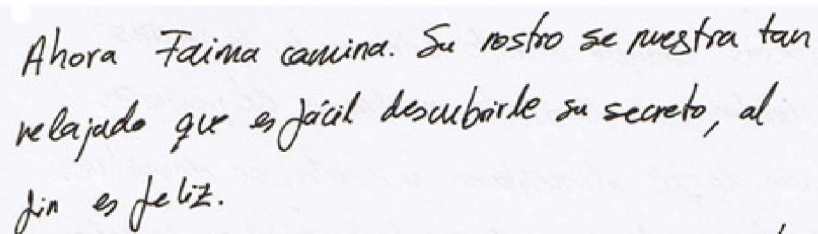 Ahora Faima camina. Su rostro se muestra tan
relajado que es fácil descubrirle su secreto, al
fin es feliz.